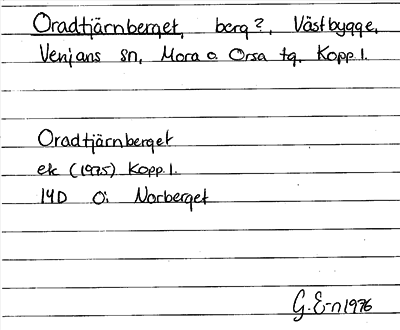 Oradtjärnberget, berg?, Västbygge,
Venjans sn, Mora o. Orsa tg, Kopp. l.
Oradtjärnberget
ek (1975) Kopp. l.
14D Ö: Norberget
G. E-n 1976